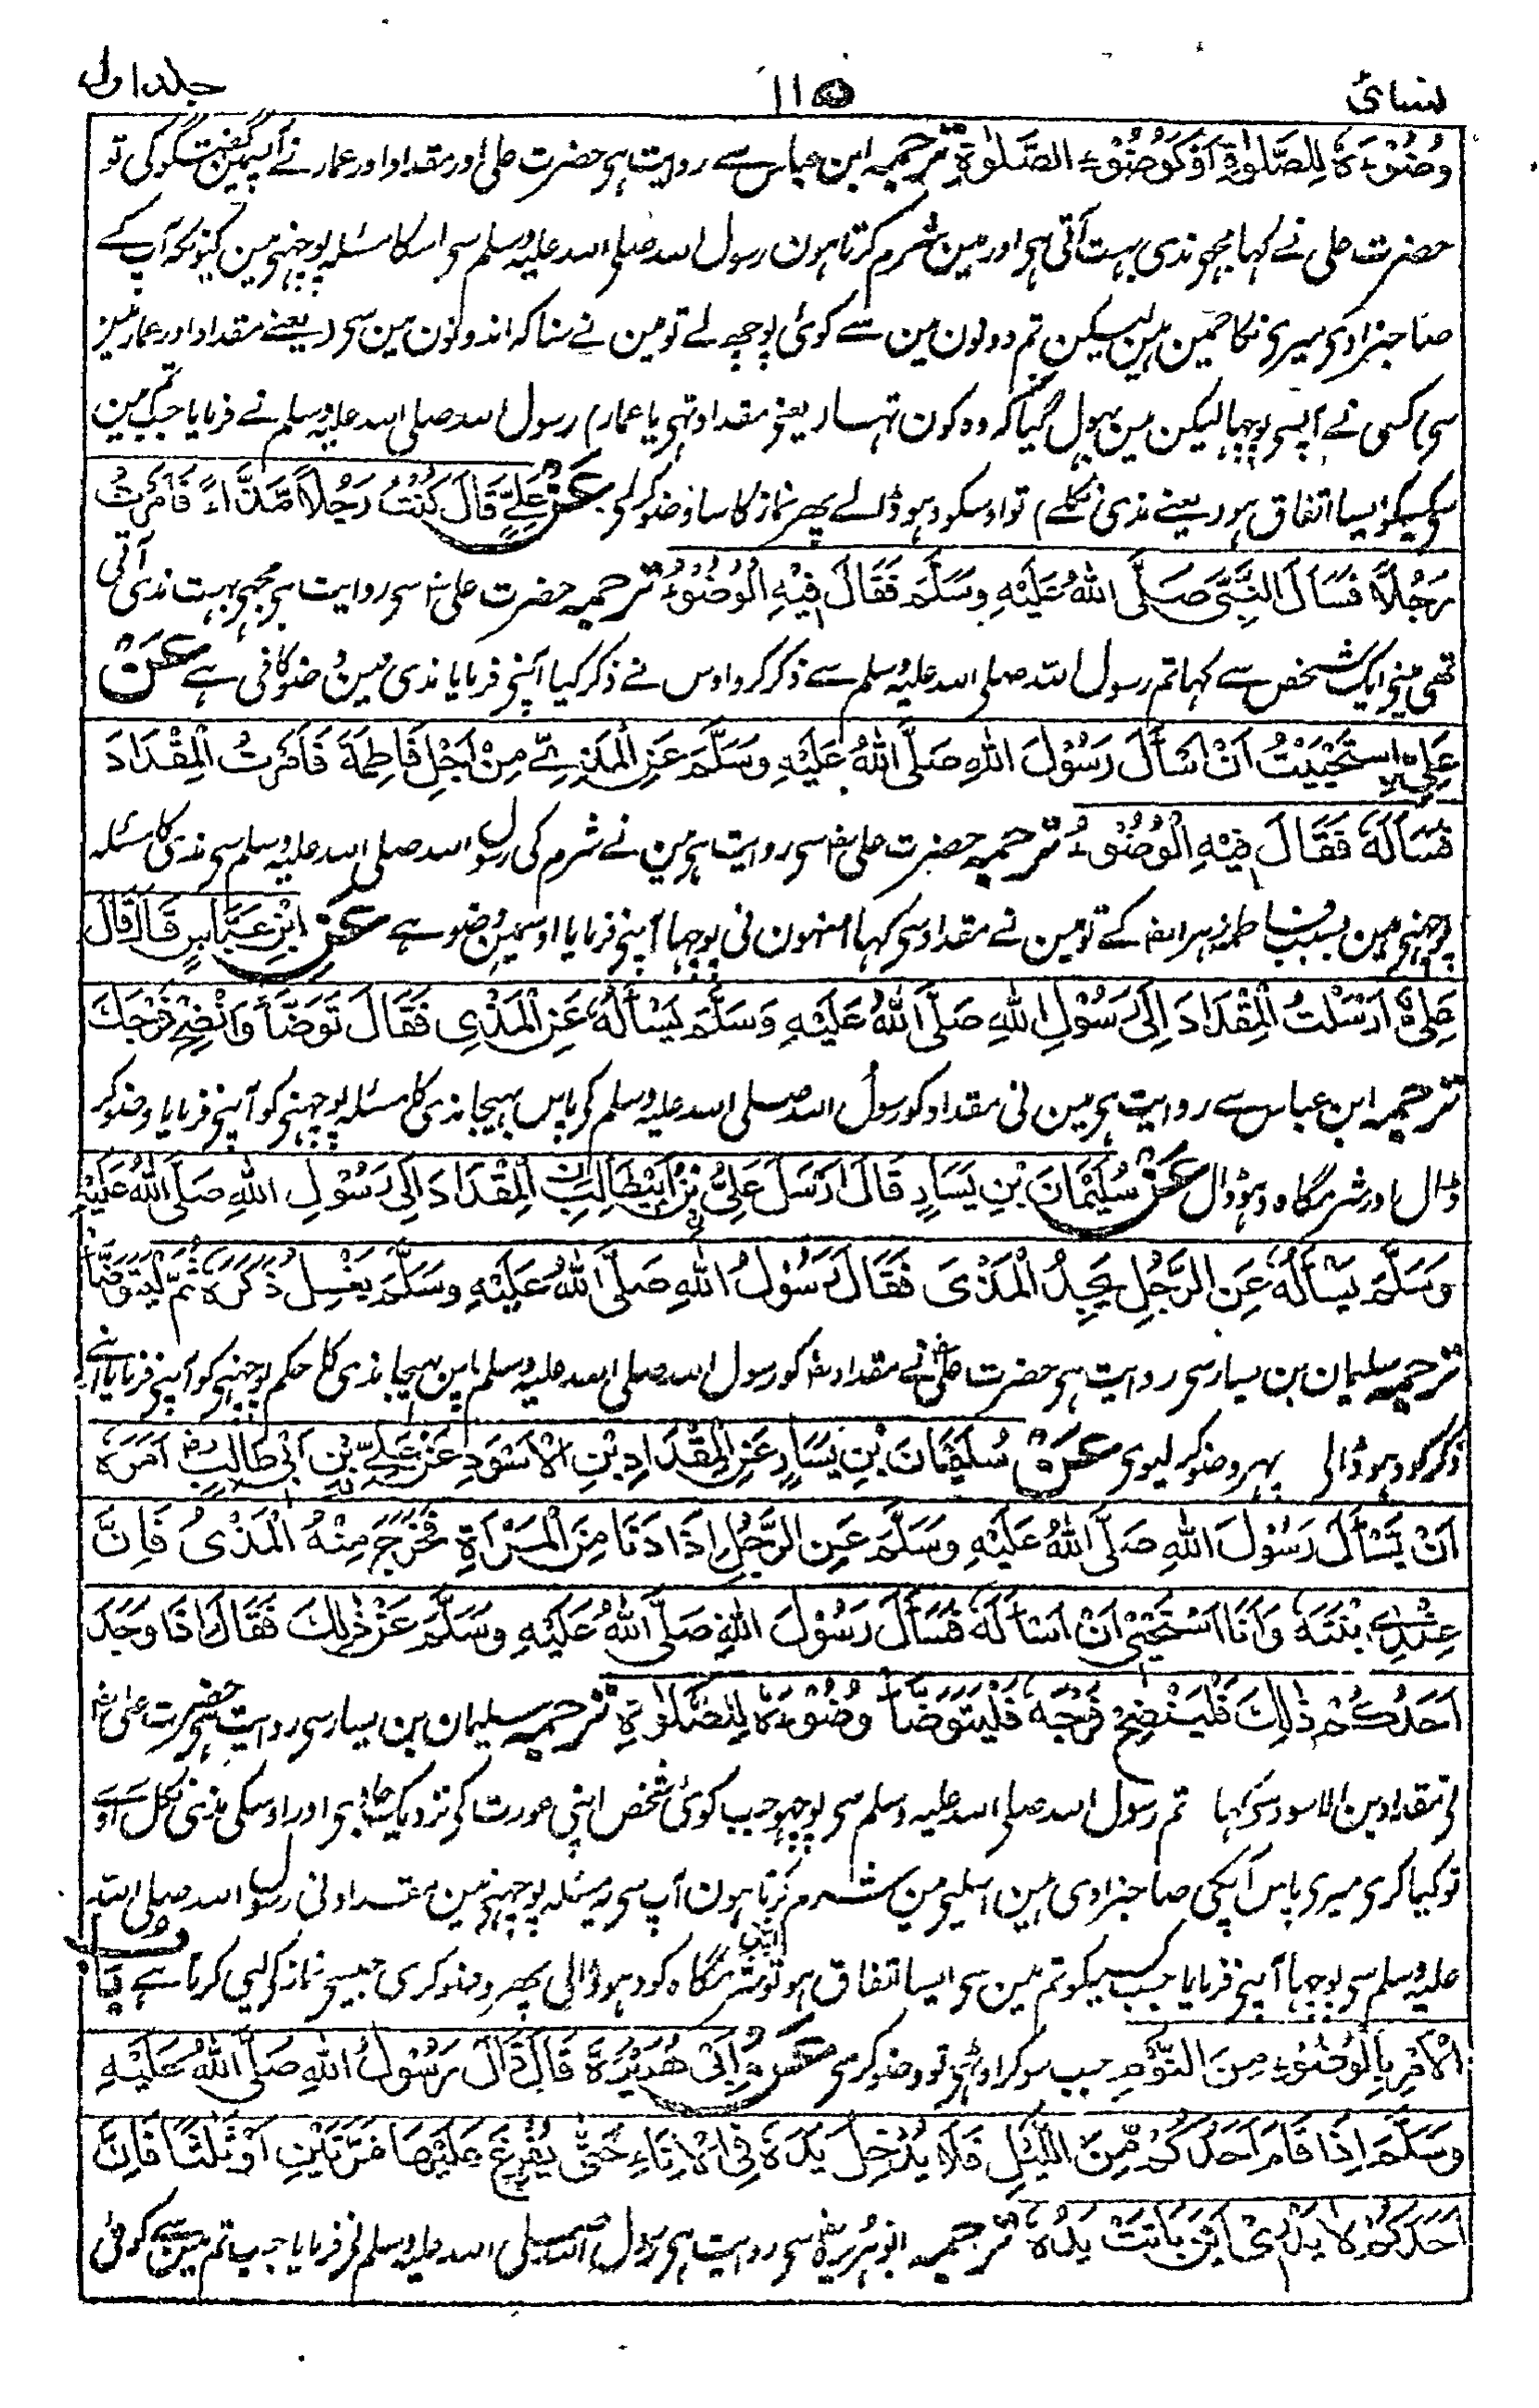 نسائی ۱۱۵ جلد اول
وُضُوْءَهٗ لِلصَّلٰوةِ اَوْ كَوُضُوْءِ الصَّلٰوةِ ترجمہ ابن عباس سے روایت ہی حضرت علی اور مقداد اور عمار نے آپسمین گفتگو کی تو
حضرت علی نے کہا مجھی مذی بہت آتی ہی اور مین شرم کرتا ہون رسول اللہ صلی اللہ علیہ وسلم سی اسکا مسئلہ پوچہنی مین کیونکہ آپ کے
صاحبزادی میری نکاحمین ہین لیکن تم دونون مین سے کوئی پوچھ لے تو مین نے سنا کہ اندونون مین سی (یعنے مقداد اور عمار مین
سی) کسی نے آپسی پوچہا لیکن مین بہول گیا کہ وہ کون تہا (یعنی مقداد تہی یا عمار) رسول اللہ صلی اللہ علیہ وسلم نے فرمایا جب تم مین
سی کسیکو ایسا اتفاق ہو (یعنے مذی نکلے) تو اوسکو دہو ڈالے پھر نماز کا سا وضو کرلی عَنْ عَلِيٍّ قَالَ كُنْتُ رَجُلًا مَّذَّاءً فَاَمَرْتُ
رَجُلًا فَسَاَلَ النَّبِيَّ صَلَّى اللهُ عَلَيْهِ وَسَلَّمَ فَقَالَ فِيْهِ الْوُضُوْءُ ترجمہ حضرت علی رض سی روایت ہی مجہی بہت مذی آتی
تھی مینی ایک شخص سے کہا تم رسول اللہ صلی اللہ علیہ وسلم سے ذکر کرو اوس نے ذکر کیا آپنی فرمایا مذی مین وضو کافی ہے عَنْ
عَلِيٍّ اِسْتَحْيَيْتُ اَنْ اَسْاَلَ رَسُوْلَ اللهِ صَلَّى اللهُ عَلَيْهِ وَسَلَّمَ عَنِ الْمَذِيِّ مِنْ اَجْلِ فَاطِمَةَ فَاَمَرْتُ الْمِقْدَادَ
فَسَاَلَهٗ فَقَالَ فِيْهِ الْوُضُوْءُ ترجمہ حضرت علی رض سی روایت ہی مین نے شرم کی رسول اللہ صلی اللہ علیہ وسلم سی مذی کا مسئلہ
پوچہنی مین بسبب فاطمہ زہرا رض کے تو مین نے مقداد سی کہا انہون نی پوچہا آپنی فرمایا اوسمین وضو ہے عَنِ ابْنِ عَبَّاسٍ قَالَ قَالَ
عَلِيٌّ اَرْسَلْتُ الْمِقْدَادَ اِلٰى رَسُوْلِ اللهِ صَلَّى اللهُ عَلَيْهِ وَسَلَّمَ يَسْاَلُهٗ عَنِ الْمَذْيِ فَقَالَ تَوَضَّأْ وَانْضِحْ فَرْجَكَ
ترجمہ ابن عباس سے روایت ہی مین نی مقداد کو رسول اللہ صلی اللہ علیہ وسلم کی پاس بہیجا مذی کا مسئلہ پوچہنی کو آپنی فرمایا وضو کر
ڈال اور شرمگاہ دہو ڈال عَنْ سُلَيْمَانَ بْنِ يَسَارٍ قَالَ اَرْسَلَ عَلِيُّ بْنُ اَبِيْ طَالِبٍ الْمِقْدَادَ اِلٰى رَسُوْلِ اللهِ صَلَّى اللهُ عَلَيْهِ
وَسَلَّمَ يَسْاَلُهٗ عَنِ الرَّجُلِ يَجِدُ الْمَذْىَ فَقَالَ رَسُوْلُ اللهِ صَلَّى اللهُ عَلَيْهِ وَسَلَّمَ يَغْسِلُ ذَكَرَهٗ ثُمَّ لْيَتَوَضَّأْ
ترجمہ سلیمان بن یسار سی روایت ہی حضرت علی رض نے مقداد رض کو رسول اللہ صلی اللہ علیہ وسلم پاس بہیجا مذی کا حکم پوچہنی کو آپنی فرمایا اپنے
ذکر کو دہو ڈالی پہر وضو کر لیوی عَنْ سُلَيْمَانَ بْنِ يَسَارٍ عَنِ الْمِقْدَادِ بْنِ الْاَسْوَدِ عَنْ عَلِيِّ بْنِ اَبِيْ طَالِبٍ رض اَمَرَهٗ
اَنْ يَّسْاَلَ رَسُوْلَ اللهِ صَلَّى اللهُ عَلَيْهِ وَسَلَّمَ عَنِ الرَّجُلِ اِذَا دَنَا مِنَ الْمَرْاَةِ فَخَرَجَ مِنْهُ الْمَذْيُ فَاِنَّ
عِنْدِيْ ابْنَتَهٗ وَاَنَا اَسْتَحْيِيْ اَنْ اَسْاَلَهٗ فَسَاَلَ رَسُوْلَ اللهِ صَلَّى اللهُ عَلَيْهِ وَسَلَّمَ عَنْ ذٰلِكَ فَقَالَ اِذَا وَجَدَ
اَحَدُكُمْ ذٰلِكَ فَلْيَنْضِحْ فَرْجَهٗ فَلْيَتَوَضَّأْ وُضُوْءَهٗ لِلصَّلٰوةِ ترجمہ سلیمان بن یسار سی روایت ہی حضرت علی رض
نی مقداد بن الاسود سی کہا تم رسول اللہ صلی اللہ علیہ وسلم سی پوچہو جب کوئی شخص اپنی عورت کی نزدیک جاوی اور اوسکی مذی نکل آوے
تو کیا کری میری پاس آپکی صاحبزادی ہین اسلیی مین شرم کرتا ہون آپ سی یہ مسئلہ پوچہنی مین مقداد نی رسول اللہ صلی اللہ
علیہ وسلم سی پوچہا آپنی فرمایا جب کسیکو تم مین سی ایسا اتفاق ہو تو اپنی شرمگاہ کو دہو ڈالی پھر وضو کری جیسی نماز کی لیی کرتا ہے بَابُ
الْاَمْرِ بِالْوُضُوْءِ مِنَ النَّوْمِ جب سوکر اوٹہی تو وضو کری عَنْ اَبِيْ هُرَيْرَةَ قَالَ قَالَ رَسُوْلُ اللهِ صَلَّى اللهُ عَلَيْهِ
وَسَلَّمَ اِذَا قَامَ اَحَدُكُمْ مِّنَ اللَّيْلِ فَلَا يُدْخِلْ يَدَهٗ فِي الْاِنَاءِ حَتّٰى يُفْرِغَ عَلَيْهَا مَرَّتَيْنِ اَوْ ثَلٰثًا فَاِنَّ
اَحَدَكُمْ لَا يَدْرِيْ اَيْنَ بَاتَتْ يَدُهٗ ترجمہ ابو ہریرہ رض سی روایت ہی رسول اللہ صلی اللہ علیہ وسلم نی فرمایا جب تم مین سے کوئی